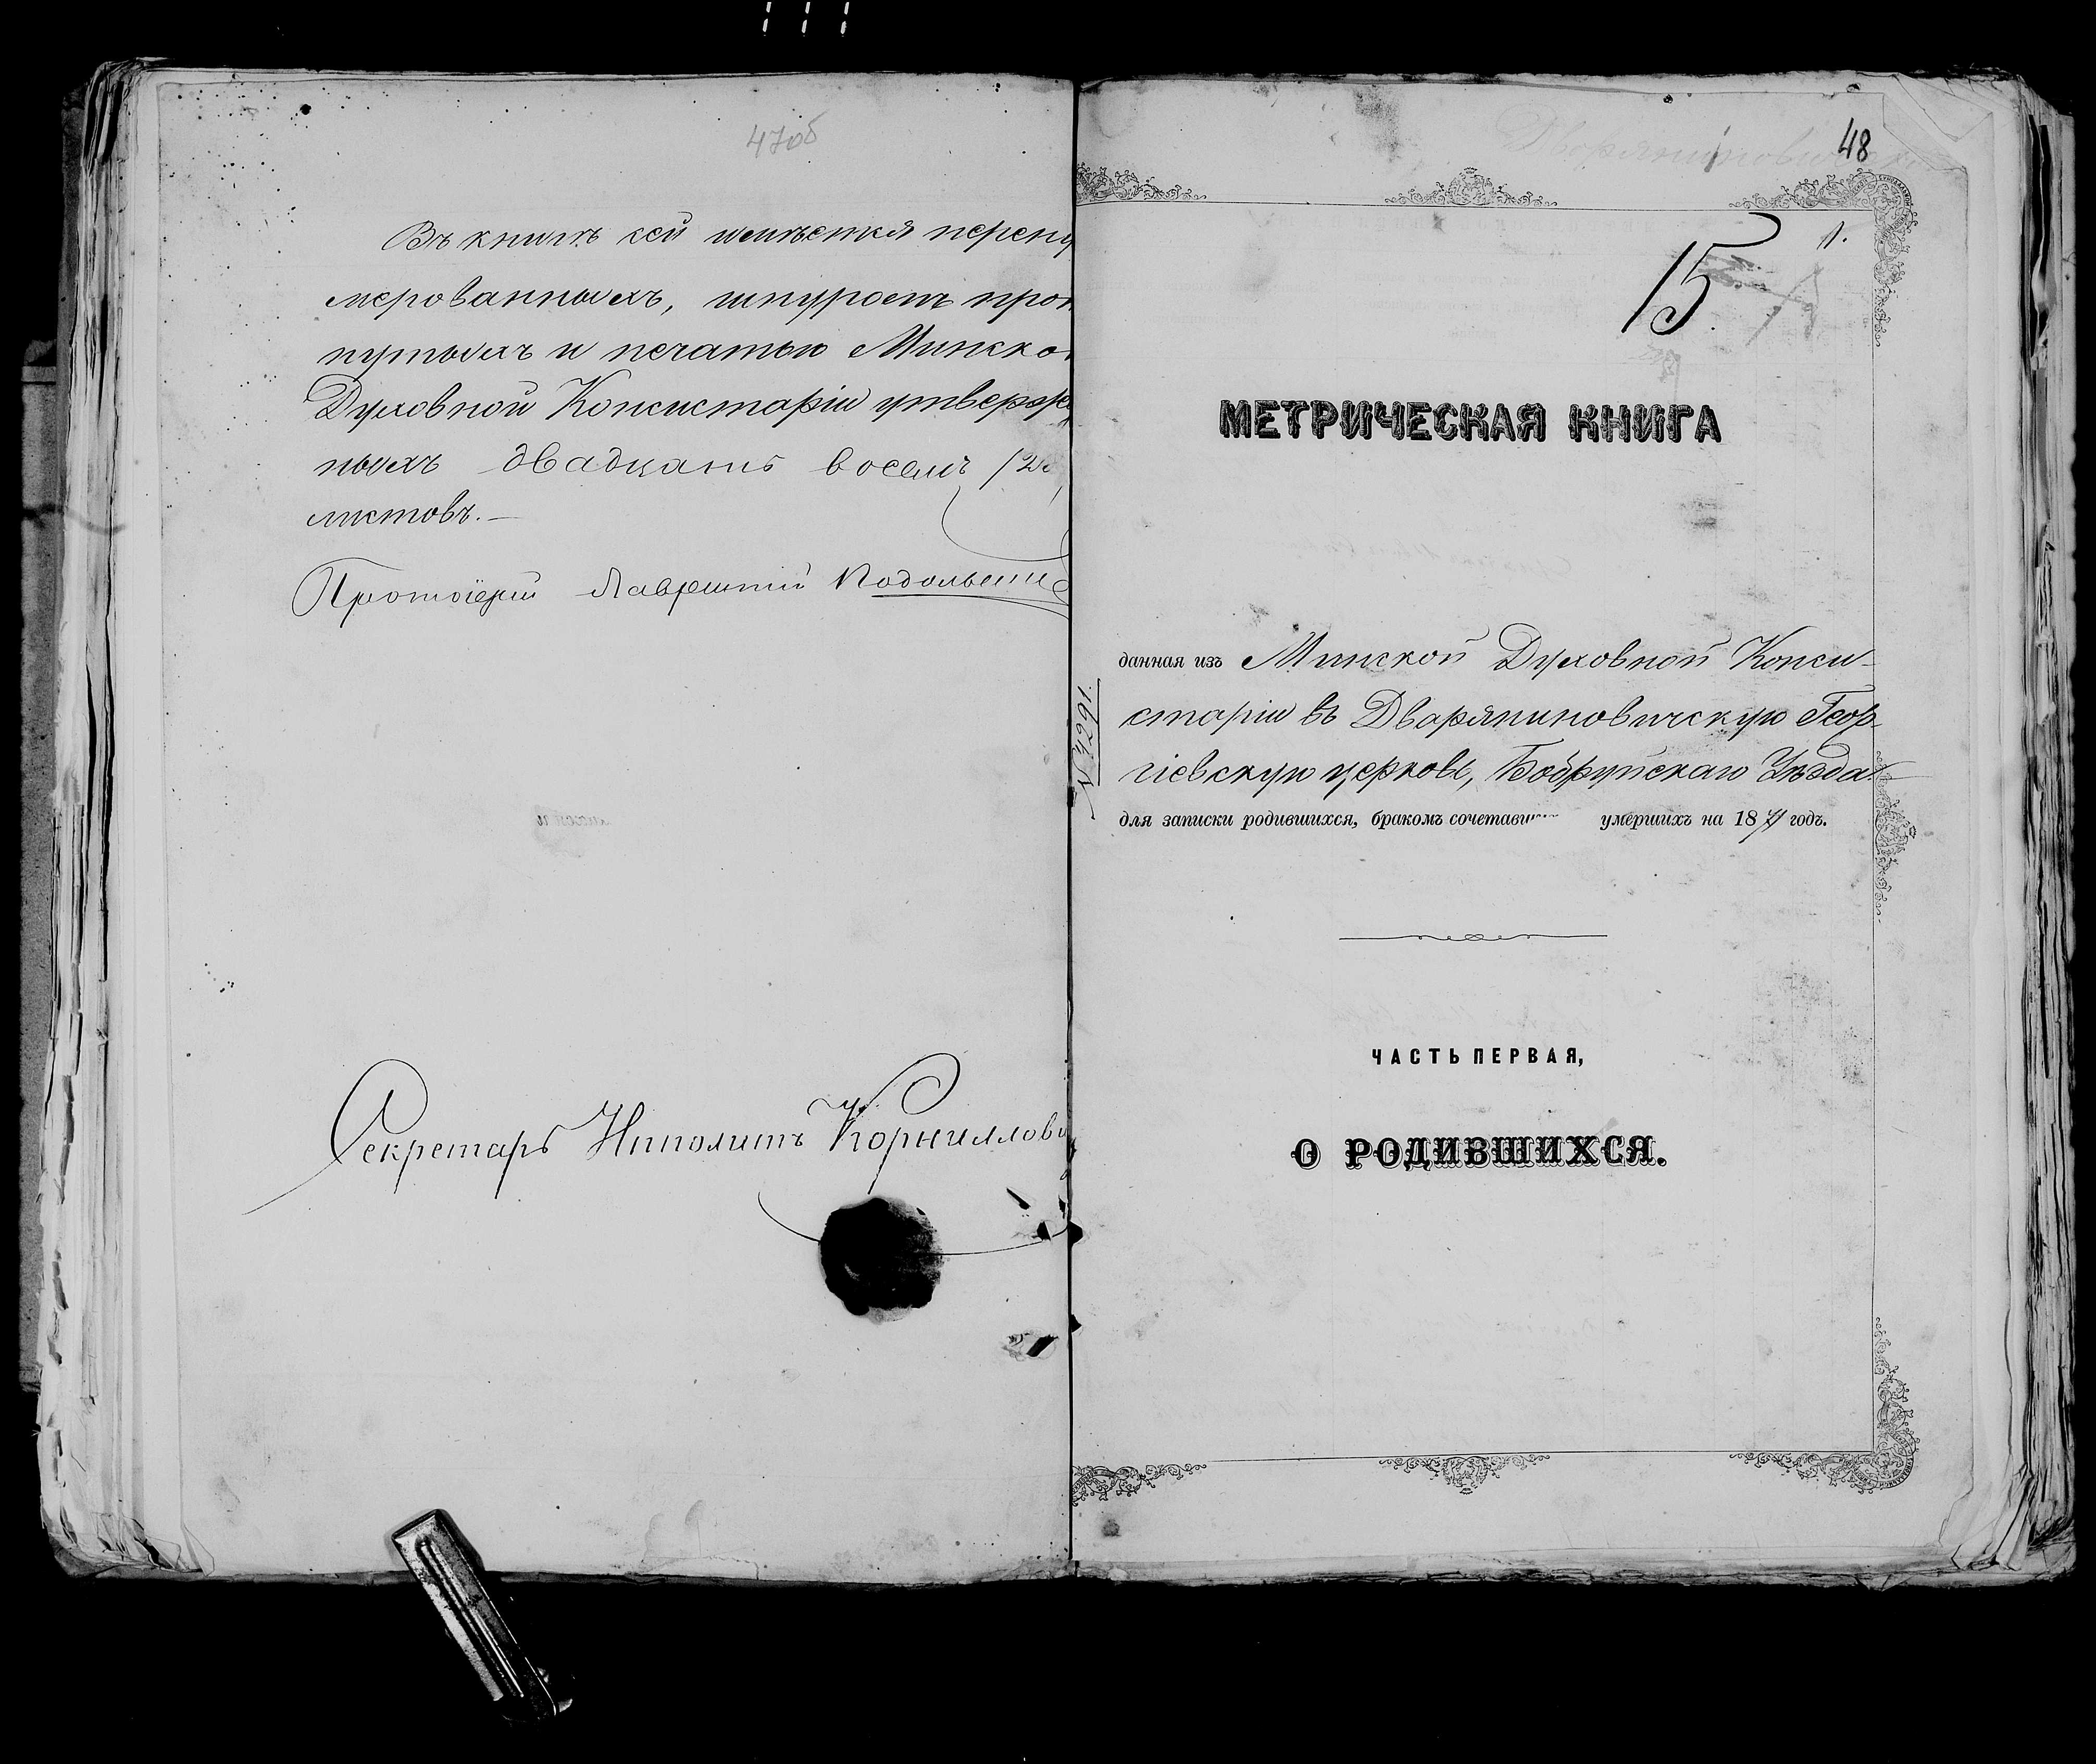 47об
Въ книгѣ сей имѣется перену
мерованныхъ, шнуромъ прон
нутыхъ и печатью Минско
Духовной Консисторіи утвержд
ныхъ двадцать восемь /28
листовъ.—
Протоіерей Лаврентій
Секретарь Ипполитъ Корнилов
48
1.
15
МЕТРИЧЕСКАЯ КНИГА
данная изъ Минской Духовной Конси-
сторіи въ Дворяниновичскую Геор-
гіевскую церковь, Бобруйскаго Уѣзда
для записки родившихся, бракомъ сочетавши умершихъ на 18 годъ.
№ 4291.
ЧАСТЬ ПЕРВАЯ,
О РОДИВШИХСЯ.